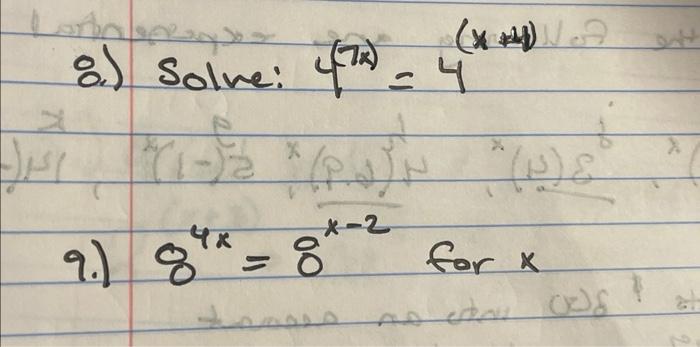 8.) Solve: 4^(7x) = 4^(x+4)
9.) 8^4x = 8^x-2 for x